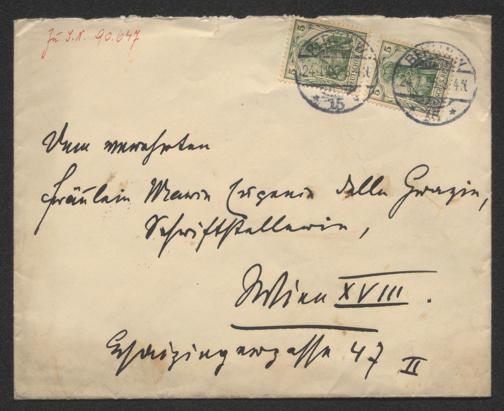 Zu I.N. 90.647
5 5
BERLIN
15
Dem verehrten
Fräulein Marie Eugenie delle Grazie,
Schriftstellerin,
Wien XVIII.
gasse 47 II